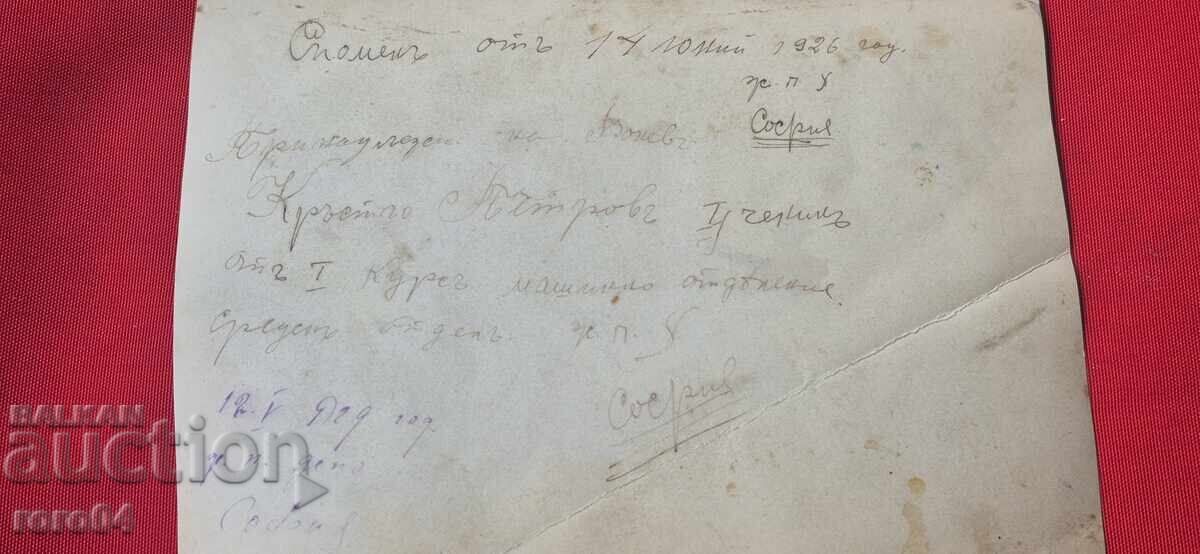 Споменъ отъ 14 юний 1926 год.
ж. п. У
София
Принадлежи на
Кръстю Петровъ Ученикъ
отъ I Курсъ машинно отдѣление
средст. отделъ ж. п. У
София
12. V год
ж. п. депо
София
BALKAN
auction
roro64